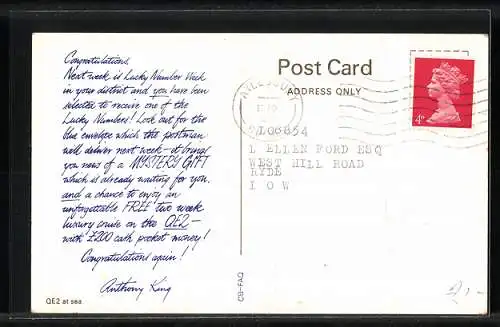 Congratulations,
Next week is Lucky Number Week
in your district and you have been
selected to receive one of the
Lucky Numbers! Look out for the
blue envelope which the postman
will deliver next week - it brings
you news of a MYSTERY GIFT
which is already waiting for you,
and a chance to enjoy an
unforgettable FREE two week
luxury cruise on the QE2 -
with £200 cash pocket money!
Congratulations again!
Anthony King
QE2 at sea
CB-FAQ
Post Card
ADDRESS ONLY
AYLESBURY
4P
2L06854
L ELLEN FORD ESQ
WEST HILL ROAD
RYDE
I O W